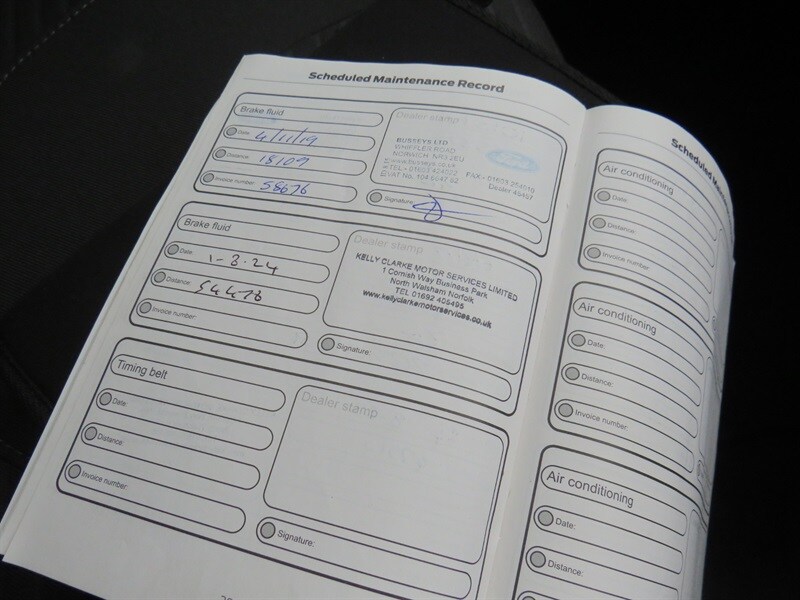 Scheduled Maintenance Record
Brake fluid
Date: 4/11/19
Distance: 18109
Invoice number: 58676
Dealer stamp
BUSSEYS LTD
WHIFFLER ROAD
NORWICH
www.busseys.co.uk
TEL - 01603
FAX - 01603
VAT No. 104
Dealer
Signature:
Brake fluid
Date: 1-3-24
Distance: 54476
Invoice number:
Dealer stamp
KELLY CLARKE MOTOR SERVICES LIMITED
1 Cornish Way Business Park
North Walsham Norfolk
TEL 01692 405495
www.kellyclarkemotorservices.co.uk
Signature:
Timing belt
Date:
Distance:
Invoice number:
Dealer stamp
Signature:
Scheduled
Air conditioning
Date:
Distance:
Invoice number:
Air conditioning
Date:
Distance:
Invoice number:
Air conditioning
Date:
Distance: